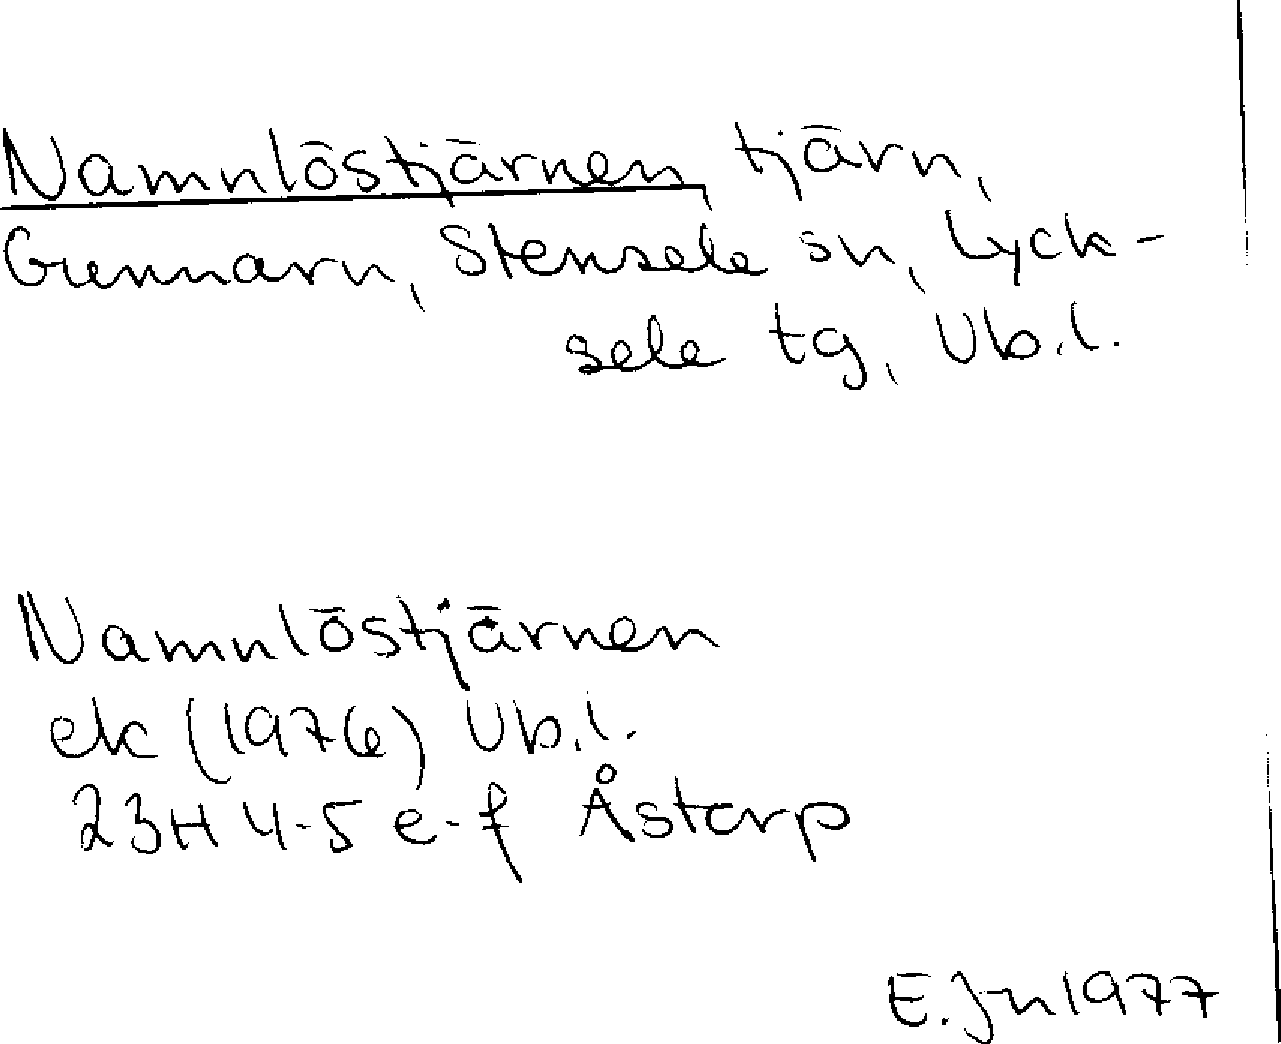 Namnlöstjärnen, tjärn,
Gunnarn, Stensele sn, Lyck-
sele tg, Vb.l.
Namnlöstjärnen
ek (1976) Vb.l.
23H 4-5 e-f Åstorp
E. Jn 1977